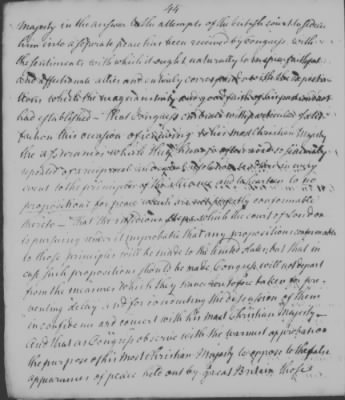 44
Majesty in the answer to the attempts of the British court to seduce
him into a separate peace has been received by Congress with
the sentiments with which it ought naturally to inspire faithful
and affectionate allies and entirely corresponds with the expecta
tions which the magnanimity and good faith of his past conduct
had established — That Congress embrace with particular satis
faction this occasion of renewing to his most Christian Majesty
the assurances which they have so often and so sincerely
repeated of a reciprocal and resolution to adhere in every
event to the principles of the alliance and to hearken to no
propositions for peace which are not perfectly conformable
thereto — That the insidious steps which the court of London
is pursuing render it improbable that any propositions conformable
to those principles will be made to the United States, but that in
case such propositions should be made Congress will not depart
from the measures which they have heretofore taken for pre
venting delay and for conducting the discussion of them
in confidence and concert with his most Christian Majesty —
And that as Congress observe with the warmest approbation
the purpose of his Most Christian Majesty to oppose to the false
appearances of peace held out by Great Britain those